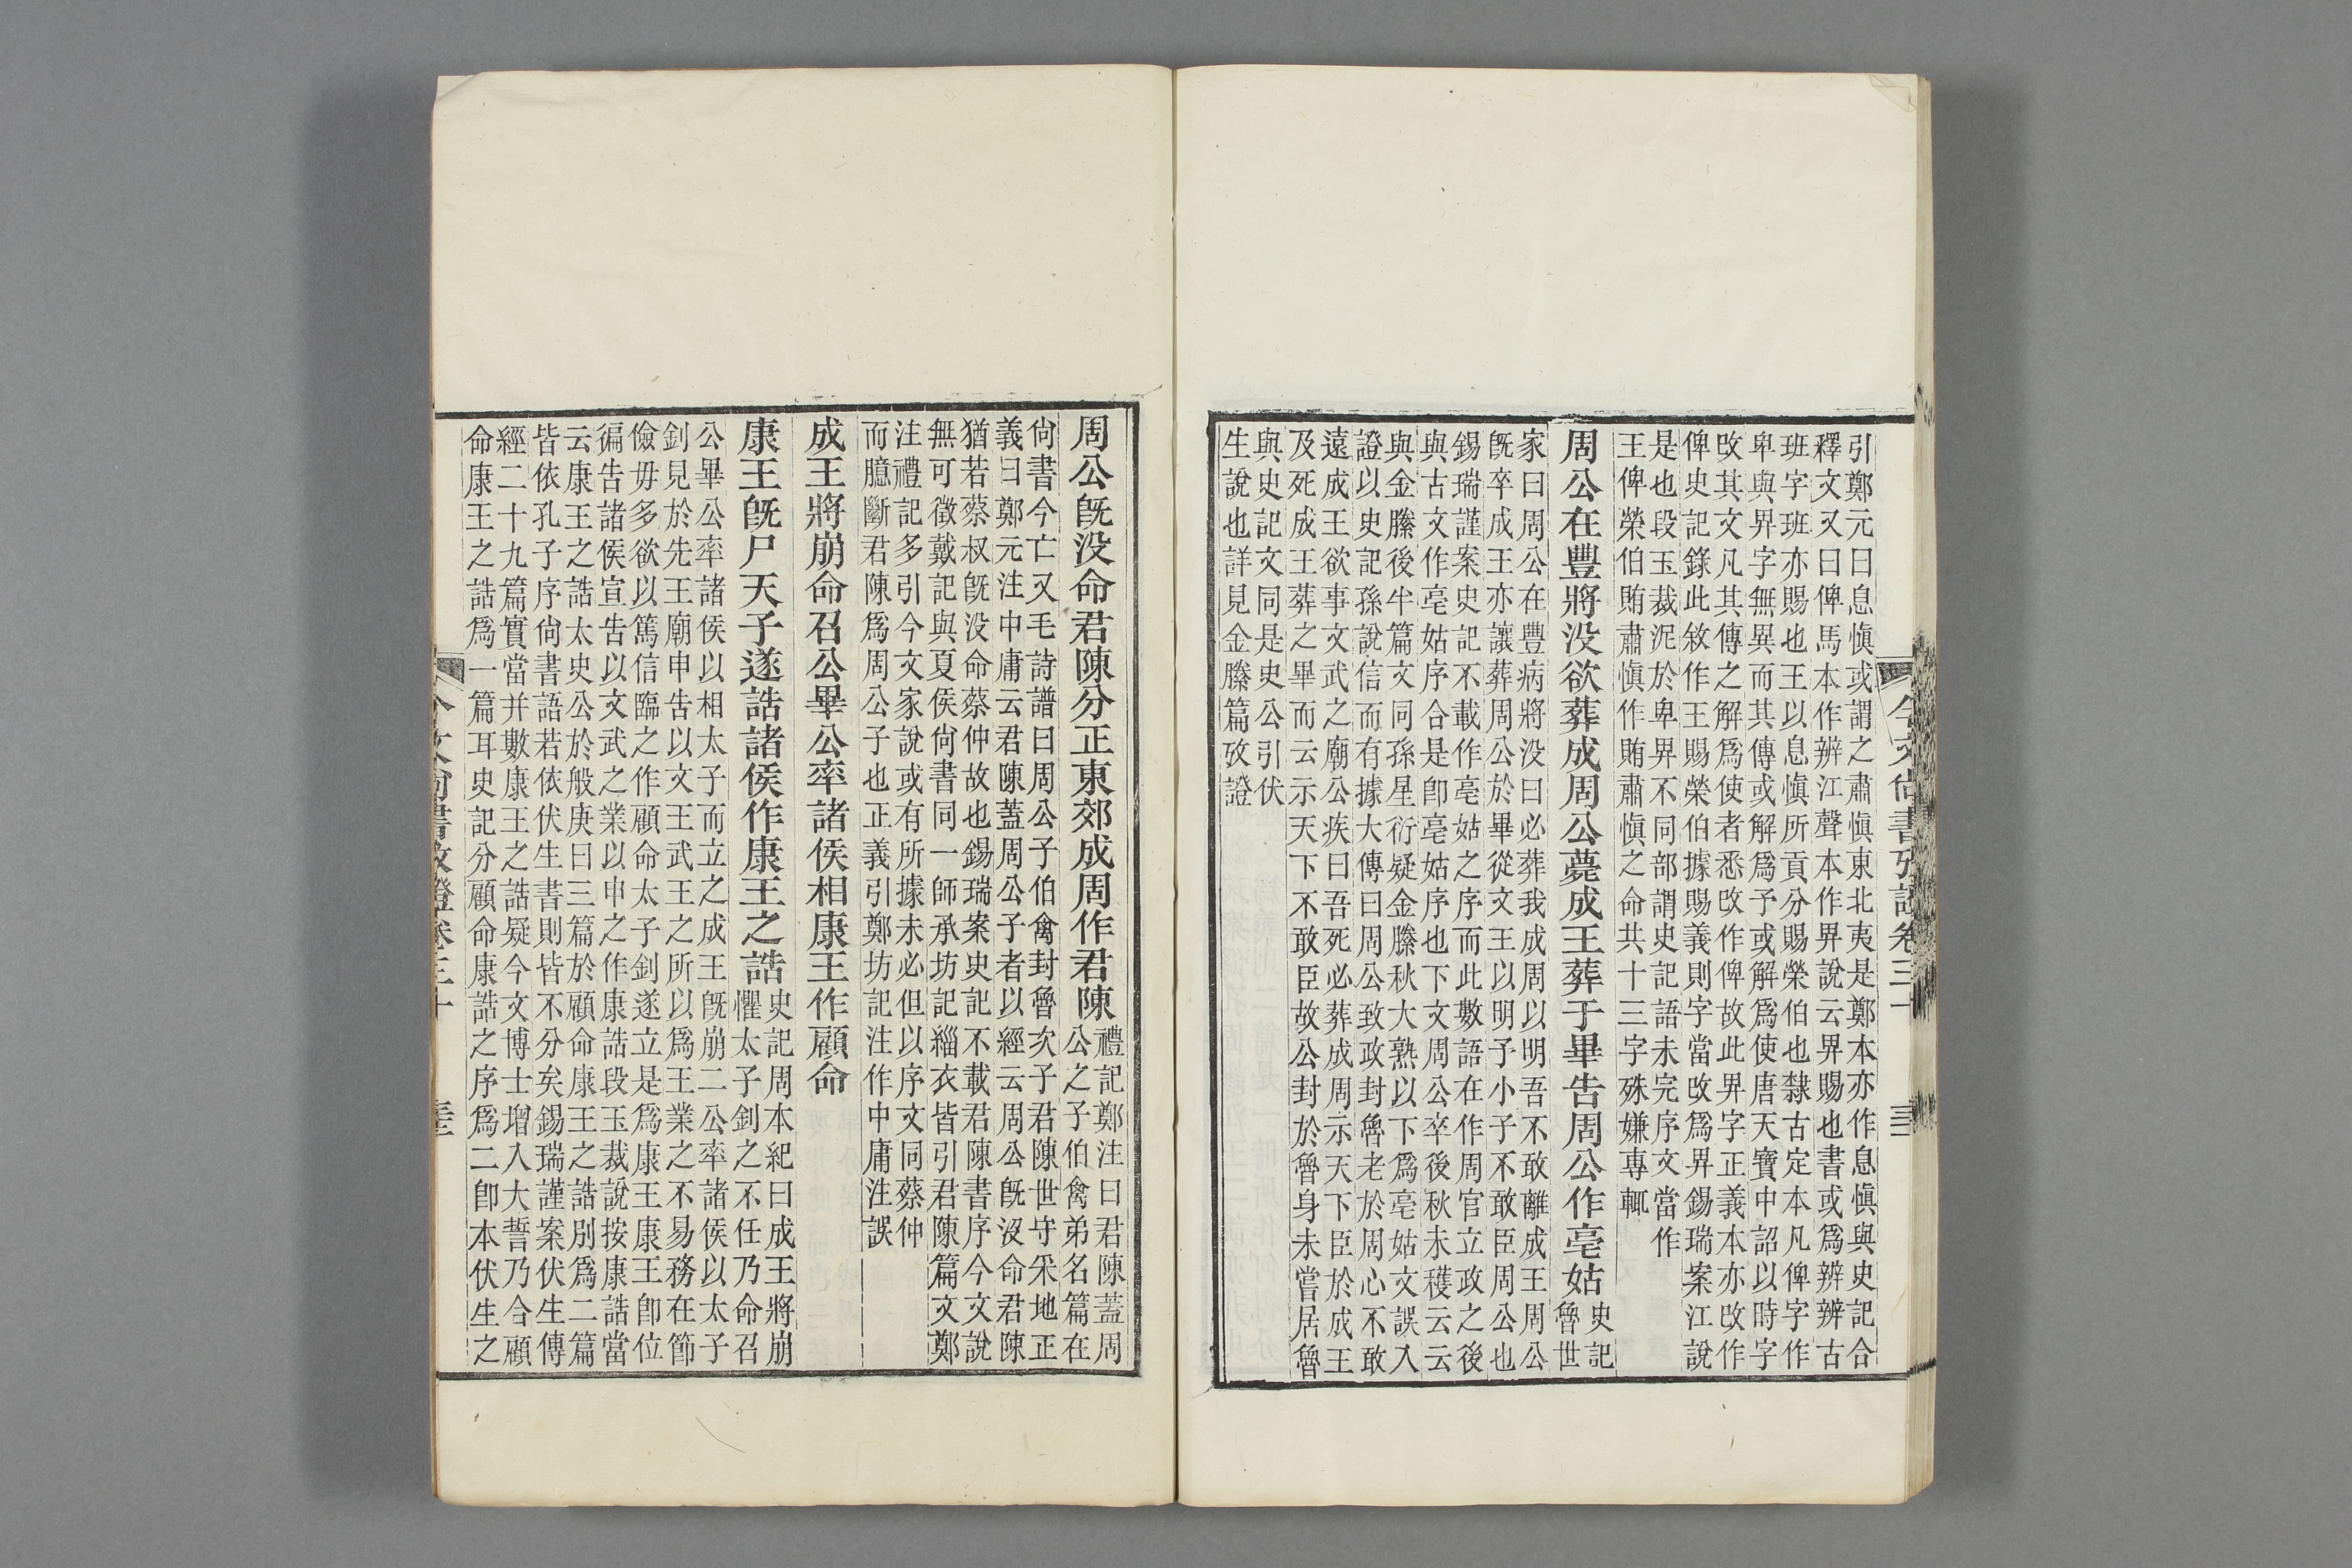 引鄭元曰息愼或謂之肅愼東北夷是鄭本亦作息愼與史記合
釋文又曰俾馬本作辨江聲本作畀說云畀賜也書或爲辨辨古
班字班亦賜也王以息愼所貢分賜榮伯也隸古定本凡俾字作
卑與畀字無異而其傳或解爲予或解爲使唐天寶中詔以時字
改其文凡其傳之解爲使者悉改作俾故此畀字正義本亦改作
俾史記錄此敘作王賜榮伯據賜義則字當改爲畀錫瑞案江說
是也段玉裁泥於卑畀不同部謂史記語未完序文當作
王俾榮伯賄肅愼作賄肅愼之命共十三字殊嫌專輒
周公在豐將没欲葬成周公薨成王葬于畢告周公作亳姑 史記
魯世
家曰周公在豐病將没曰必葬我成周以明吾不敢離成王周公
旣卒成王亦讓葬周公於畢從文王以明予小子不敢臣周公也
錫瑞謹案史記不載作亳姑之序而此數語在作周官立政之後
與古文作亳姑序合是卽亳姑序也下文周公卒後秋未穫云云
與金縢後半篇文同孫星衍疑金縢秋大熟以下爲亳姑文誤入
證以史記孫說信而有據大傳曰周公致政封魯老於周心不敢
遠成王欲事文武之廟公疾曰吾死必葬成周示天下臣於成王
及死成王葬之畢而云示天下不敢臣故公封於魯身未嘗居魯
與史記文同是史公引伏
生說也詳見金縢篇攷證
今文尙書攷證卷三十
周公旣没命君陳分正東郊成周作君陳 禮記鄭注曰君陳蓋周
公之子伯禽弟名篇在
尙書今亡又毛詩譜曰周公子伯禽封魯次子君陳世守采地正
義曰鄭元注中庸云君陳蓋周公子者以經云周公旣沒命君陳
猶若蔡叔旣没命蔡仲故也錫瑞案史記不載君陳書序今文說
無可徵戴記與夏侯尙書同一師承坊記緇衣皆引君陳篇文鄭
注禮記多引今文家說或有所據未必但以序文同蔡仲
而臆斷君陳爲周公子也正義引鄭坊記注作中庸注誤
成王將崩命召公畢公率諸侯相康王作顧命
康王旣尸天子遂誥諸侯作康王之誥 史記周本紀曰成王將崩
懼太子釗之不任乃命召
公畢公率諸侯以相太子而立之成王旣崩二公率諸侯以太子
釗見於先王廟申告以文王武王之所以爲王業之不易務在節
儉毋多欲以篤信臨之作顧命太子釗遂立是爲康王康王卽位
徧告諸侯宣告以文武之業以申之作康誥段玉裁說按康誥當
云康王之誥太史公於般庚曰三篇於顧命康王之誥別爲二篇
皆依孔子序尙書語若依伏生書則皆不分矣錫瑞謹案伏生傳
經二十九篇實當并數康王之誥疑今文博士增入大誓乃合顧
命康王之誥爲一篇耳史記分顧命康誥之序爲二卽本伏生之
今文尙書攷證卷三十